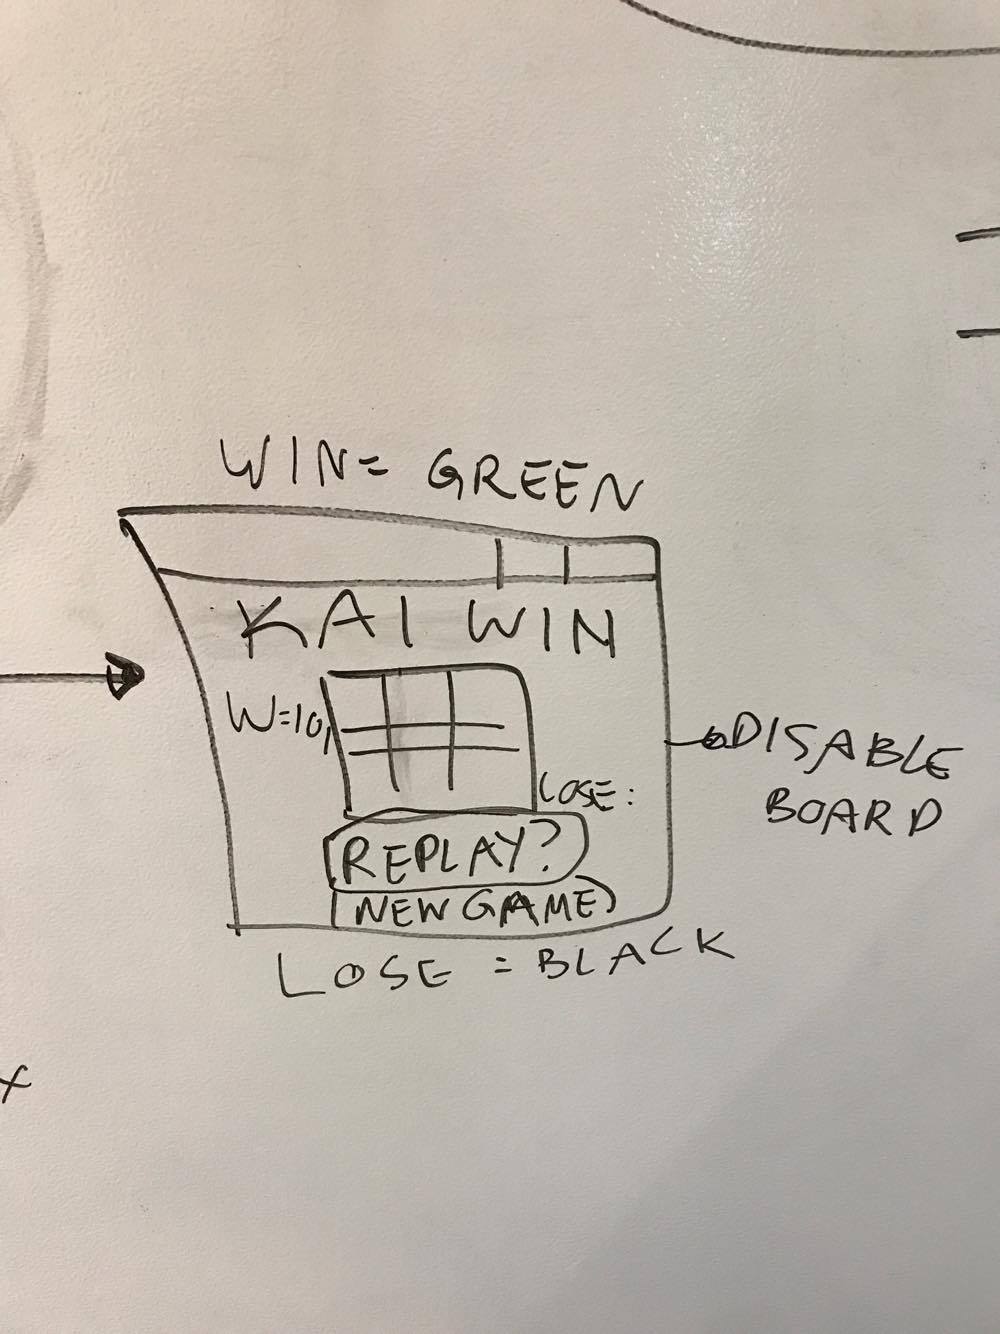 WIN= GREEN
KAI WIN
W=10,
LOSE:
REPLAY?
NEW GAME
DISABLE
BOARD
LOSE = BLACK
x